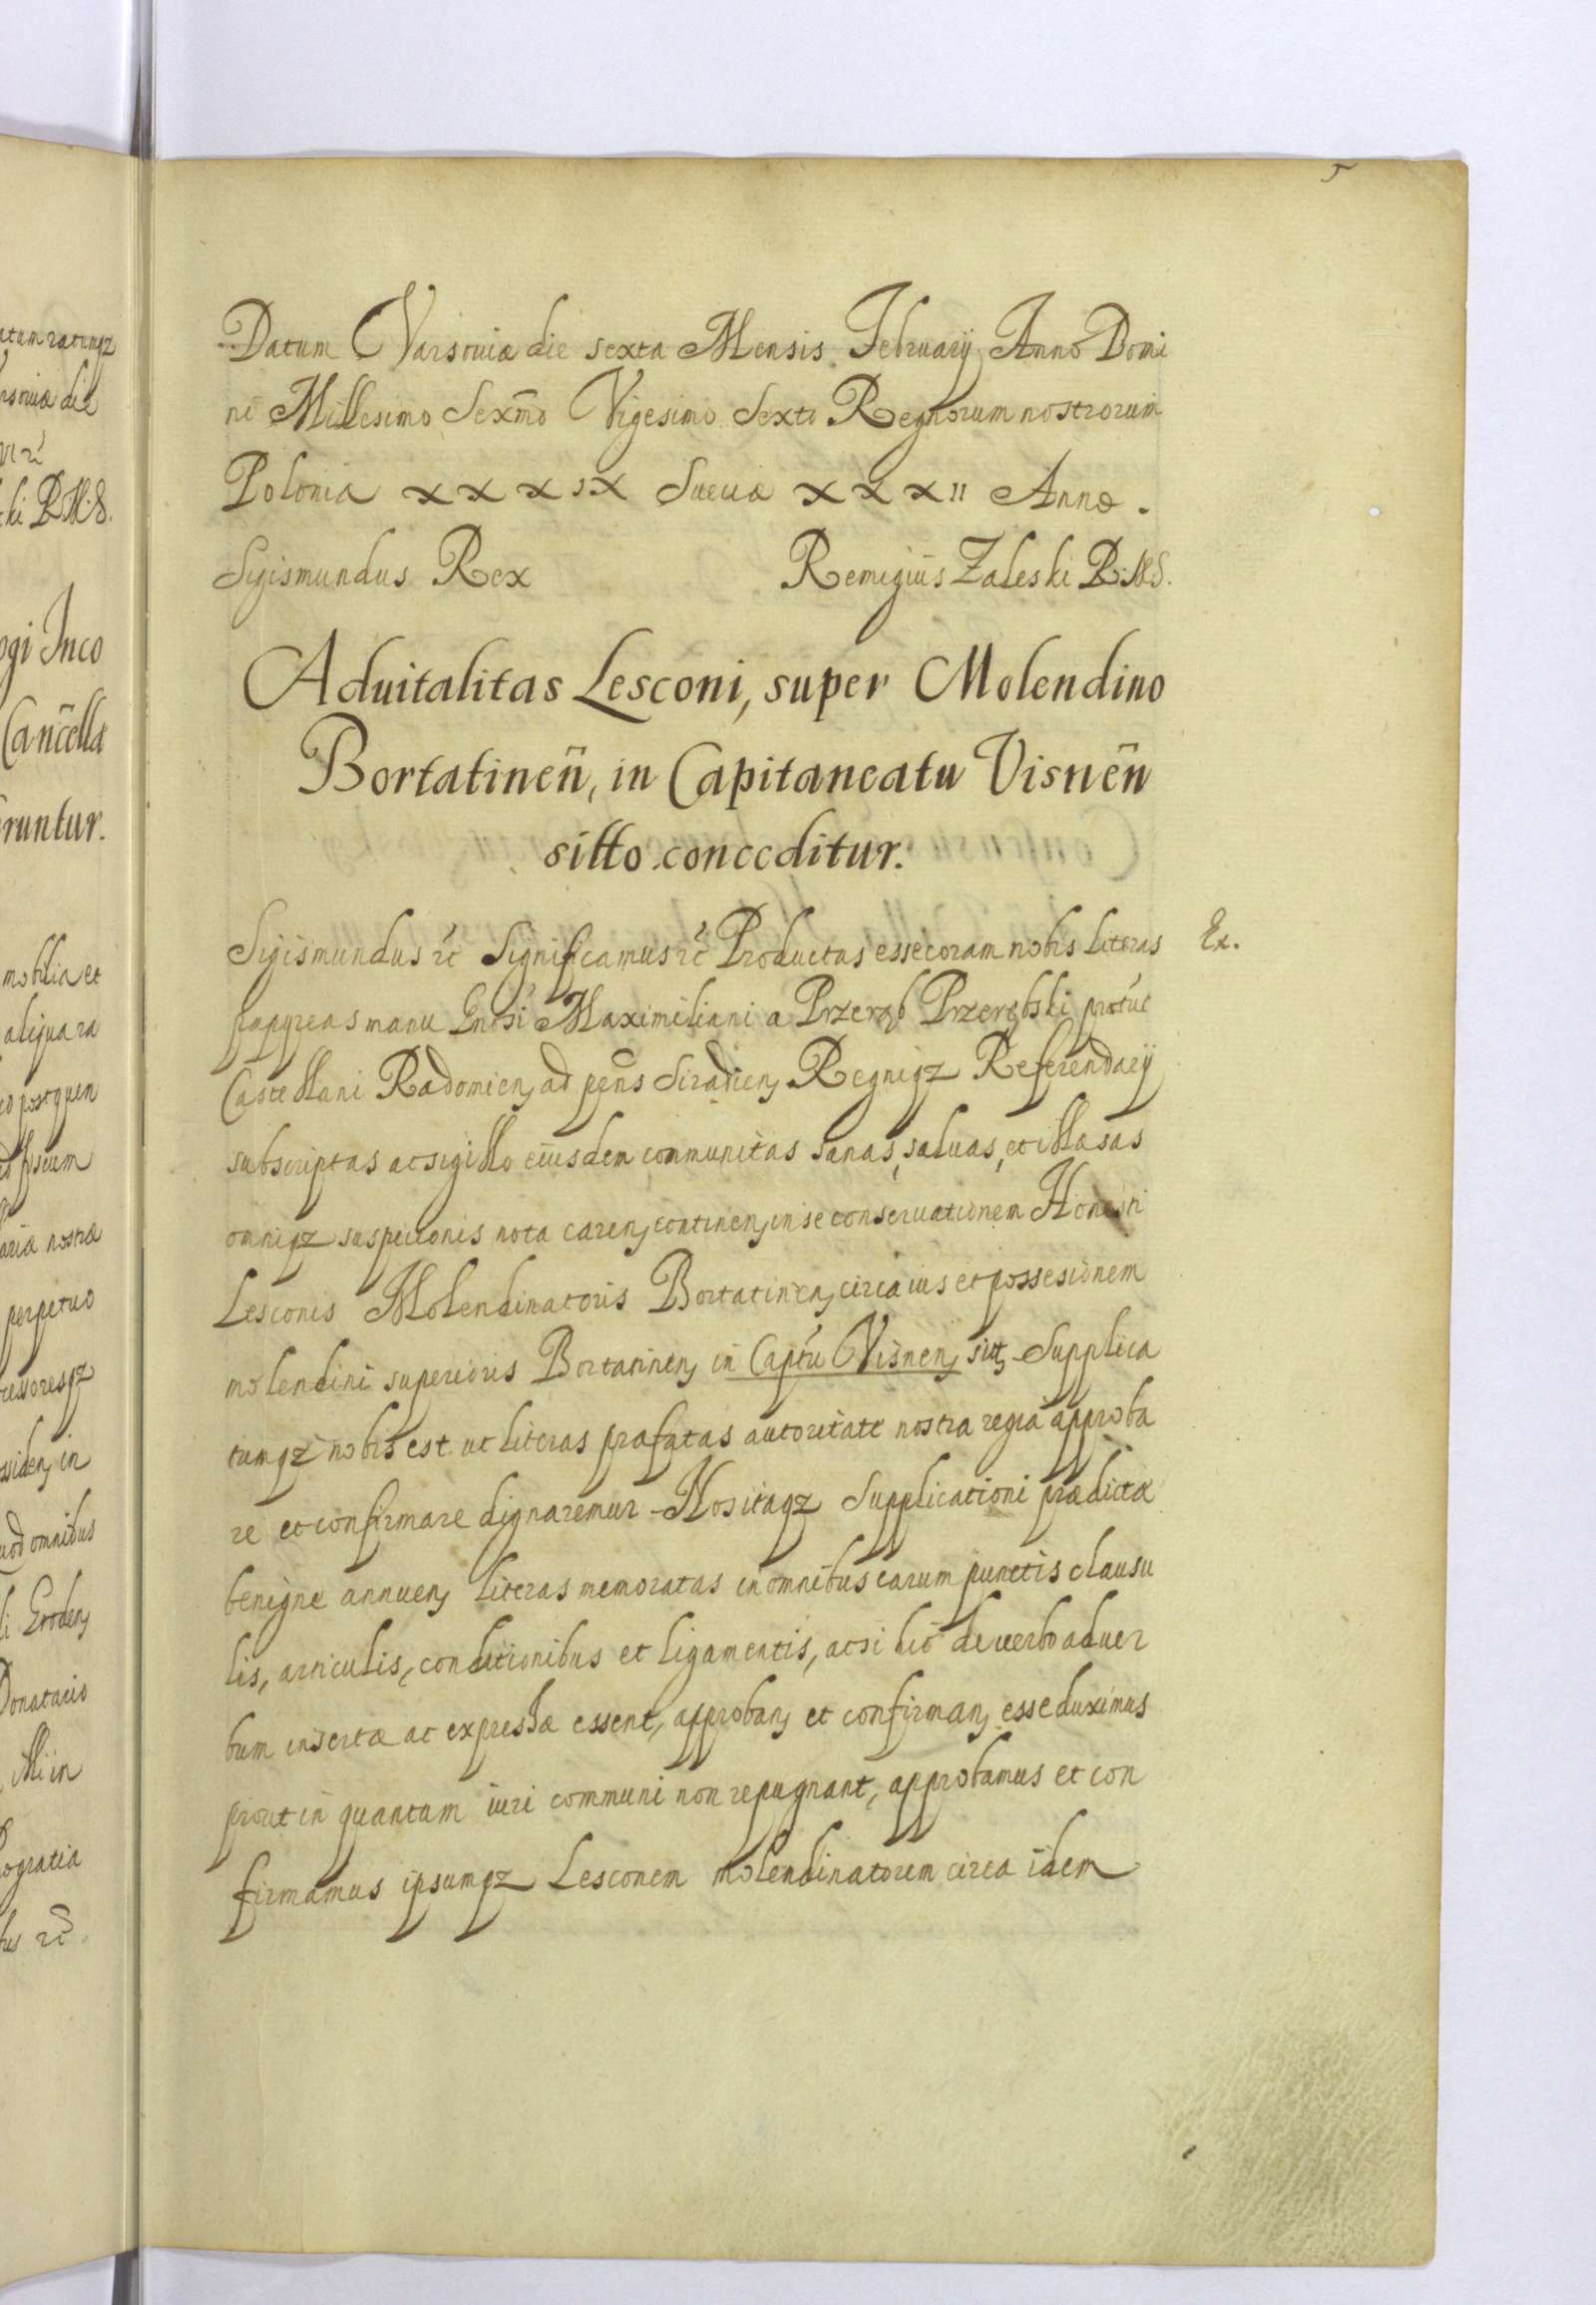 5
Datum Varsouiæ die sexta Mensis February Anno Domi
ni Millesimo Sexm̄o Vigesimo Sexto Regnorum nostrorum
Poloniæ XXXIX Sueciæ XXXII Anno.
Sigismundus Rex Remigius Zaleski R.M.S.
Aduitalitas Lesconi, super Molendino
Bortatinen̄, in Capitaneatu Visnen̄
sitto conceditur.
Sigismundus etc̄ Significamus etc̄ Productas esse coram nobis Literas Ex.
papyreas manu Gnosi Maximiliani a Przerąb Przerębski protūc
Castellani Radomien, ad p̄ns Siradien, Regniqz Referendarij
subscriptas ac sigillo eiusdem communitas sanas, saluas, et illæsas
omniqz suspicionis nota caren, continen, in se conseruationem Honesti
Lesconis Molendinatoris Bortatinen, circa ius et possesionem
molendini superioris Bortatinen, in Captu Visnen, siti, Supplica
tumqz nobis est ut literas præfatas autoritate nostra regia approba
re et confirmare dignaremur. Nos itaqz Supplicationi prædictæ
benigne annuen, literas memoratas in omnibus earum punctis clausu
lis, articulis, conditionibus et ligamentis, acsi hic de uerbo ad uer
bum insertæ ac expressæ essent, approban, et confirman, esse duximus
prout in quantum iuri communi non repugnant, approbamus et con
firmamus ipsumqz Lesconem molendinatorem circa idem
atum ratumqz
rsouiæ die
ki R.M.S.
ogi Inco
Can̄cella
runtur.
mobilia et
aliqua ra
fiscum
ariæ nostræ
perpetuo
cessoresqz
ssiden, in
uod omnibus
li Groden,
Donatario
illi in
ogratia